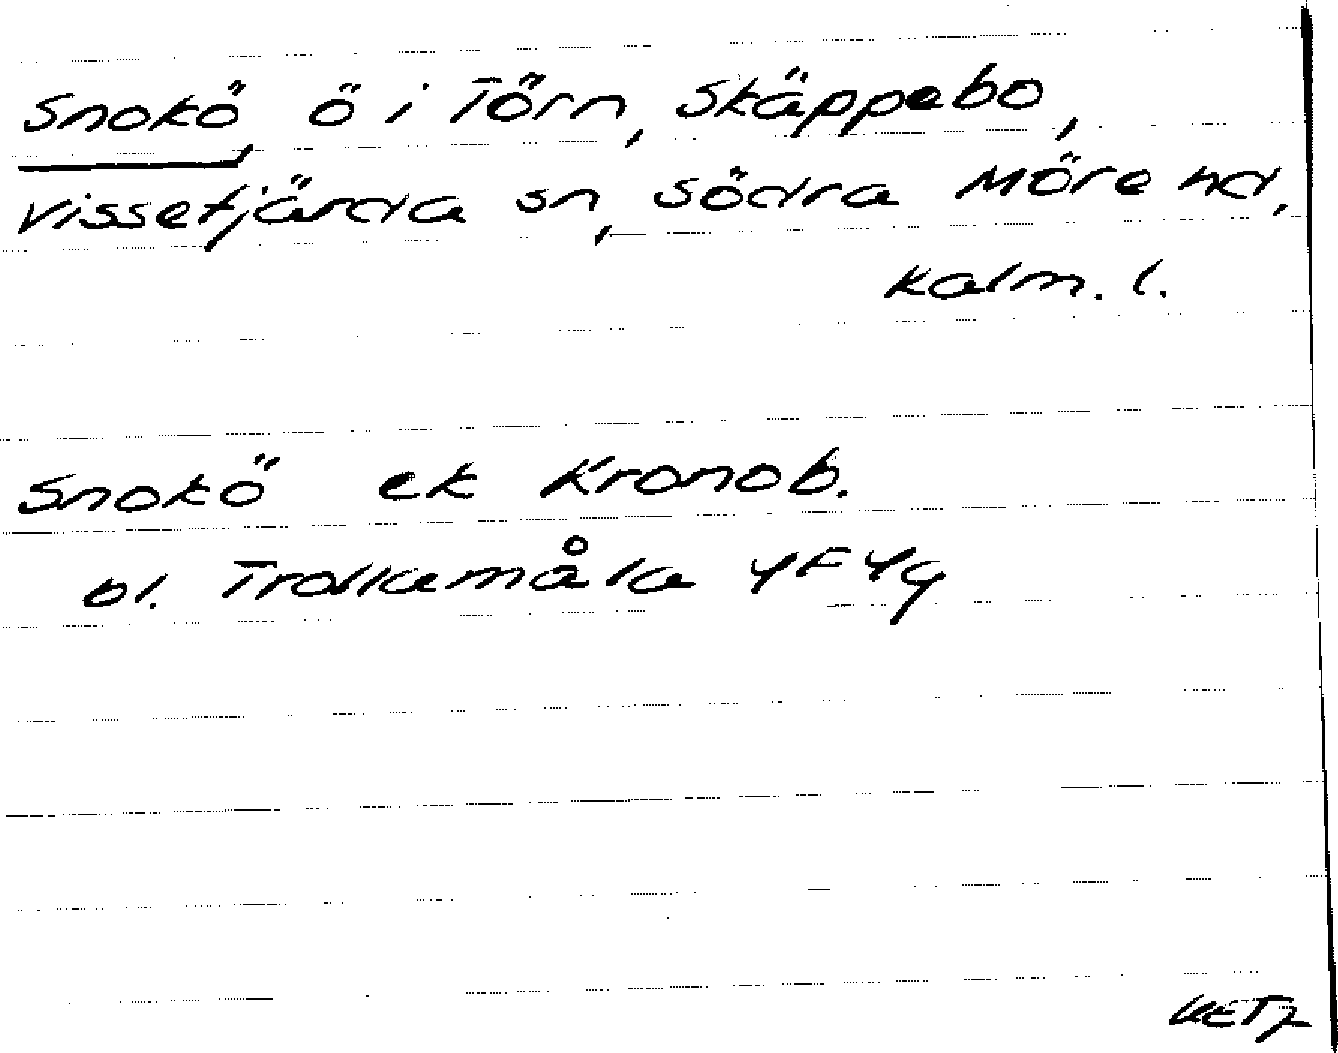 Snokö, ö i Törn, Skäppebo,
Vissefjärda sn, Södra Möre hd,
Kalm. l.
Snokö ek Kronob.
bl. Trollamåla 4F4g